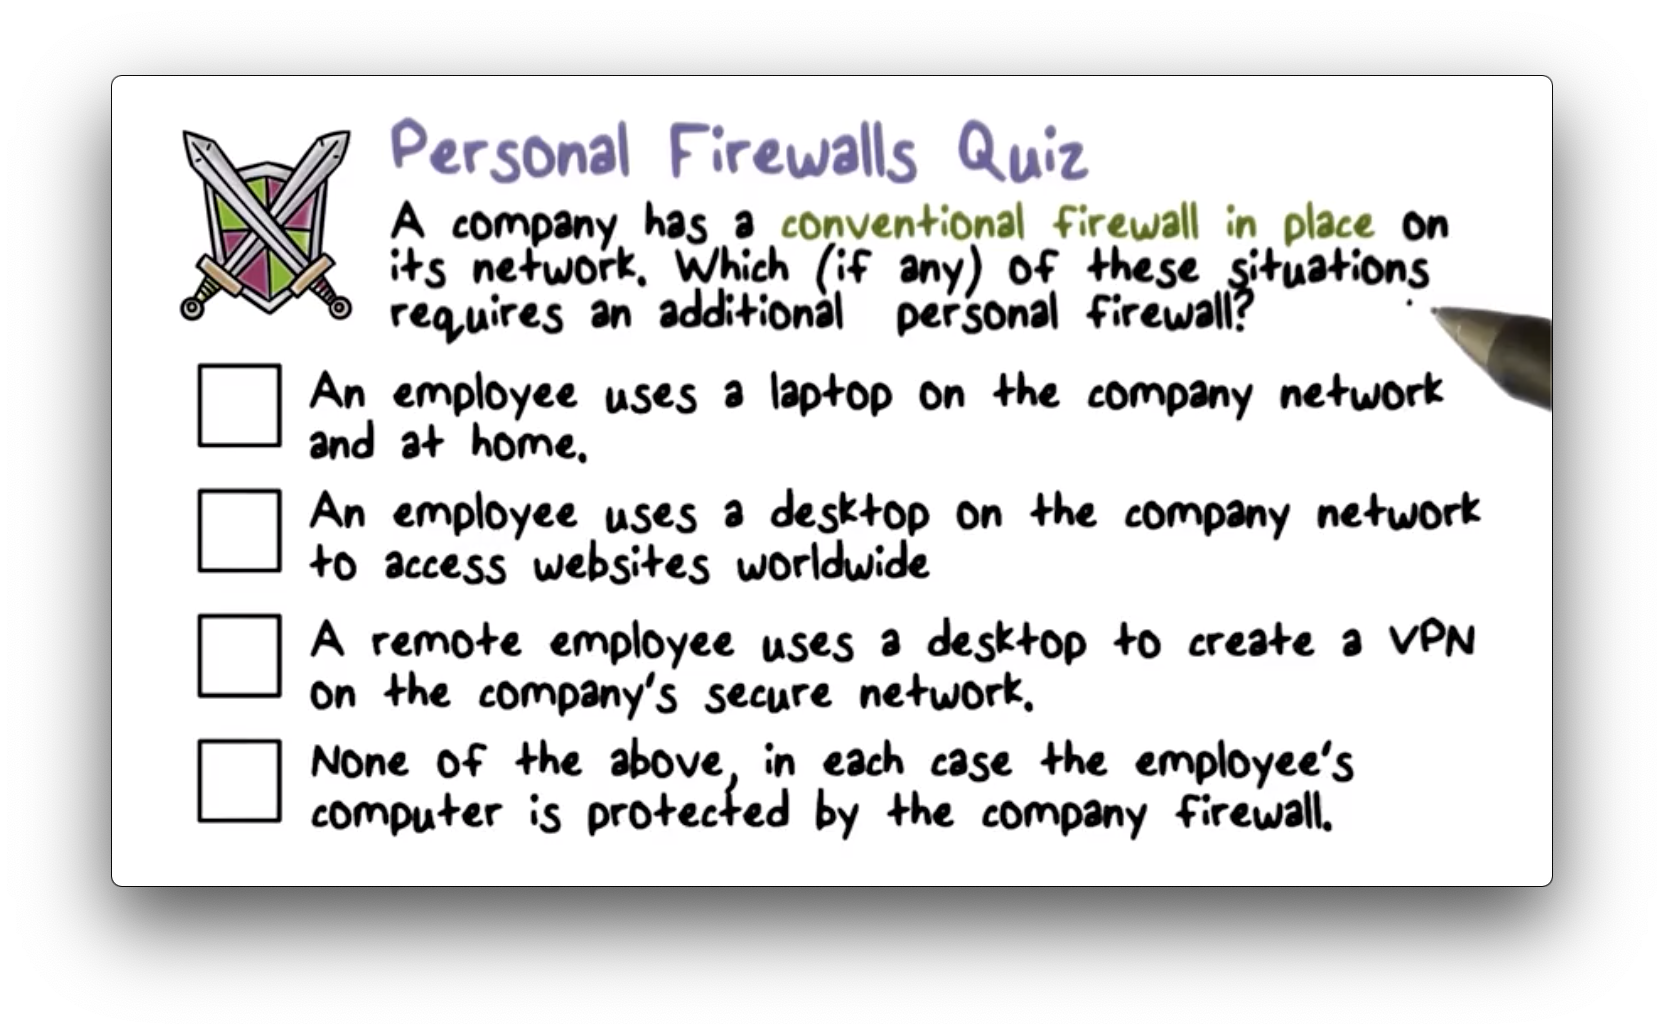 Personal Firewalls Quiz
A company has a conventional firewall in place on
its network. Which (if any) of these situations
requires an additional personal firewall?
An employee uses a laptop on the company network
and at home.
An employee uses a desktop on the company network
to access websites worldwide
A remote employee uses a desktop to create a VPN
on the company's secure network.
None of the above, in each case the employee's
computer is protected by the company firewall.